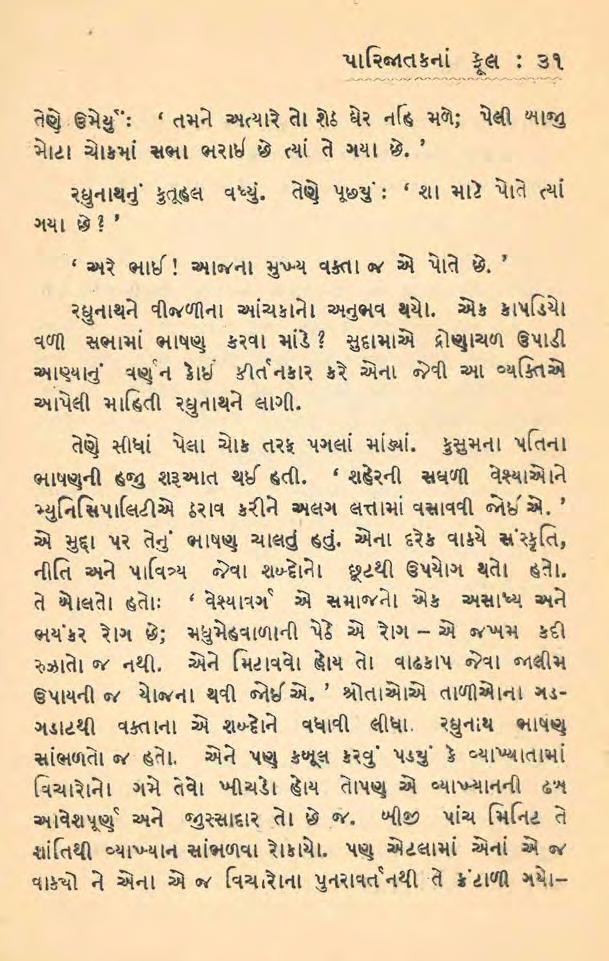 પારિજાતકનાં ફૂલ : ૩૧
તેણે ઉમેર્યું: ‘ તમને અત્યારે તો શેઠ ઘેર નહિ મળે; પેલી બાજુ
મોટા ચોકમાં સભા ભરાઈ છે ત્યાં તે ગયા છે. ’
રઘુનાથનું કુતૂહલ વધ્યું. તેણે પૂછ્યું : ‘ શા માટે પોતે ત્યાં
ગયા છે ? ’
‘ અરે ભાઈ ! આજના મુખ્ય વક્તા જ એ પોતે છે. ’
રઘુનાથને વીજળીના આંચકાનો અનુભવ થયો. એક કાપડિયો
વળી સભામાં ભાષણ કરવા માંડે ? સુદામાએ દ્રોણાચળ ઉપાડી
આણ્યાનું વર્ણન કોઈ કીર્તનકાર કરે એના જેવી આ વ્યક્તિએ
આપેલી માહિતી રઘુનાથને લાગી.
તેણે સીધાં પેલા ચોક તરફ પગલાં માંડ્યાં. કુસુમના પતિના
ભાષણની હજુ શરૂઆત થઈ હતી. ‘ શહેરની સઘળી વેશ્યાઓને
મ્યુનિસિપાલિટીએ ઠરાવ કરીને અલગ લત્તામાં વસાવવી જોઈએ. ’
એ મુદ્દા પર તેનું ભાષણ ચાલતું હતું. એના દરેક વાક્યે સંસ્કૃતિ,
નીતિ અને પાવિત્ર્ય જેવા શબ્દોનો છૂટથી ઉપયોગ થતો હતો.
તે બોલતો હતોઃ ‘ વેશ્યાવર્ગ એ સમાજનો એક અસાધ્ય અને
ભયંકર રોગ છે; મધુમેહવાળાની પેઠે એ રોગ – એ જખમ કદી
રુઝાતો જ નથી. એને મિટાવવો હોય તો વાઢકાપ જેવા જાલીમ
ઉપાયની જ યોજના થવી જોઈએ. ’ શ્રોતાઓએ તાળીઓના ગડ-
ગડાટથી વક્તાના એ શબ્દોને વધાવી લીધા. રઘુનાથ ભાષણ
સાંભળતો જ હતો. એને પણ કબૂલ કરવું પડયું કે વ્યાખ્યાતામાં
વિચારોનો ગમે તેવો ખીચડો હોય તોપણ એ વ્યાખ્યાનની ઢબ
આવેશપૂર્ણ અને જુસ્સાદાર તો છે જ. બીજી પાંચ મિનિટ તે
શાંતિથી વ્યાખ્યાન સાંભળવા રોકાયો. પણ એટલામાં એનાં એ જ
વાક્યો ને એના એ જ વિચારોના પુનરાવર્તનથી તે કંટાળી ગયો–